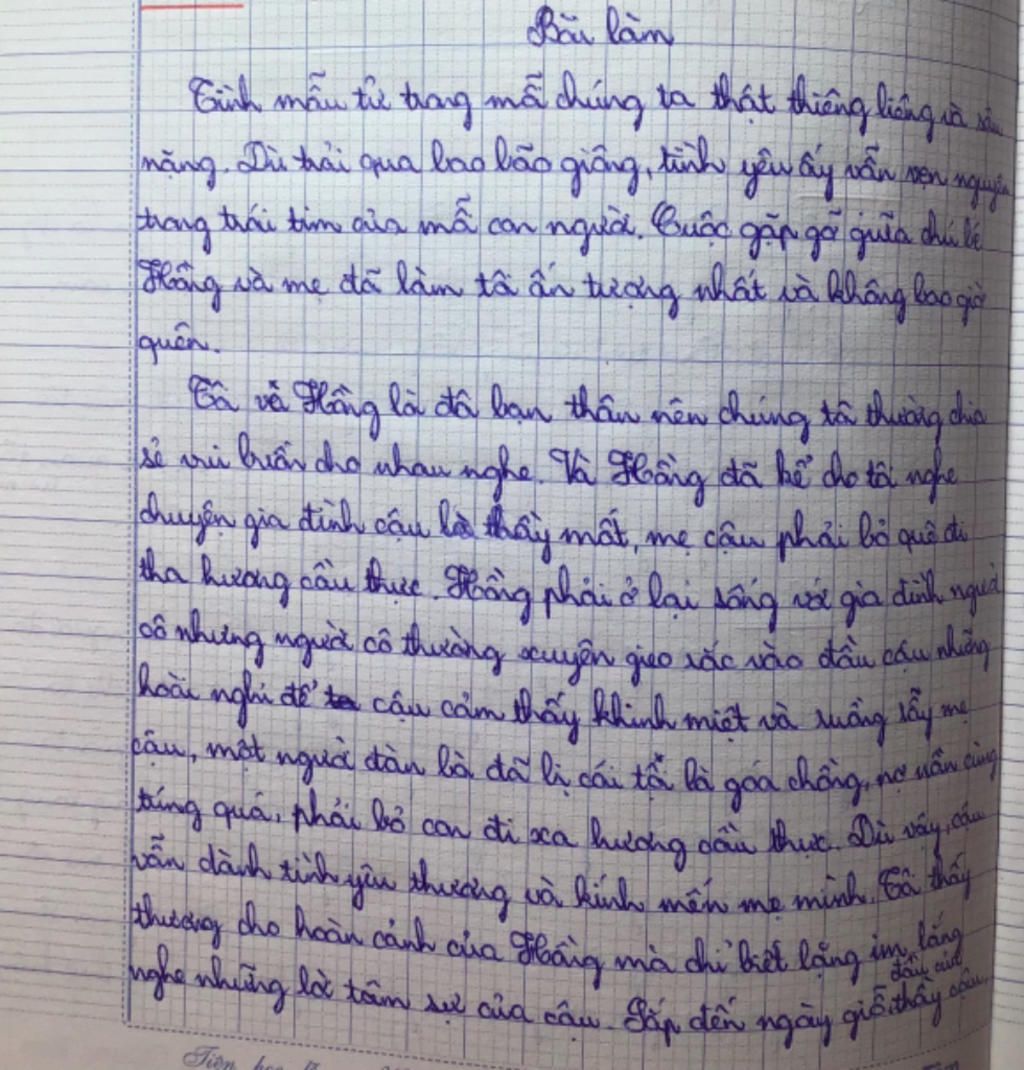 Bài làm
Tình mẫu tử trong mỗi chúng ta thật thiêng liêng và sâu
nặng. Dù trải qua bao bão giông, tình yêu ấy vẫn vẹn nguyên
trong trái tim của mỗi con người. Cuộc gặp gỡ giữa chú bé
Hồng và mẹ đã làm tôi ấn tượng nhất và không bao giờ
quên.
Tôi và Hồng là đôi bạn thân nên chúng tôi thường chia
sẻ vui buồn cho nhau nghe. Và Hồng đã kể cho tôi nghe
chuyện gia đình cậu là thầy mất, mẹ cậu phải bỏ quê đi
tha hương cầu thực. Hồng phải ở lại sống với gia đình người
cô nhưng người cô thường xuyên gieo rắc vào đầu cậu những
hoài nghi để cậu cảm thấy khinh miệt và ruồng rẫy mẹ
cậu, một người đàn bà đã bị cái tội là goá chồng, nợ nần cùng
túng quá, phải bỏ con đi xa hương cầu thực. Dù vậy, cậu
vẫn dành tình yêu thương và kính mến mẹ mình. Tôi thấy
thương cho hoàn cảnh của Hồng mà chỉ biết lặng im, lắng
nghe những lời tâm sự của cậu. Sắp đến ngày giỗ đầu của thầy cậu,